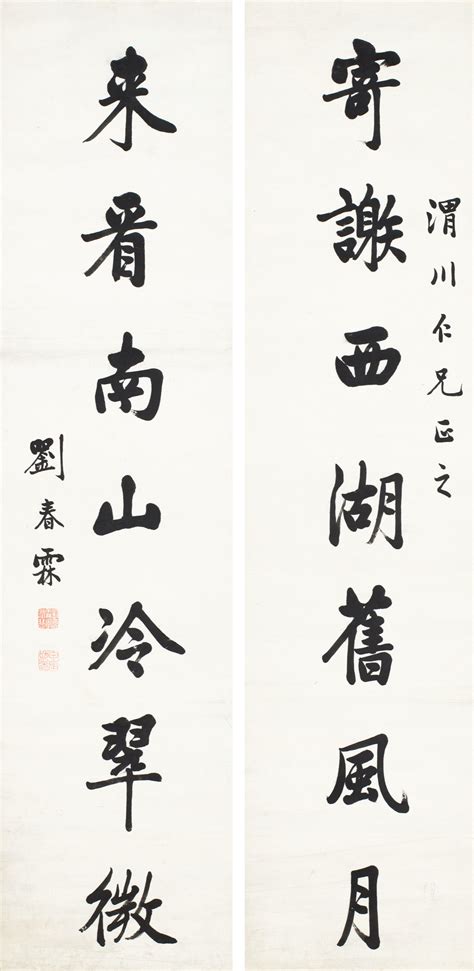 寄謝西湖舊風月
渭川仁兄正之
来看南山冷翠微
劉春霖